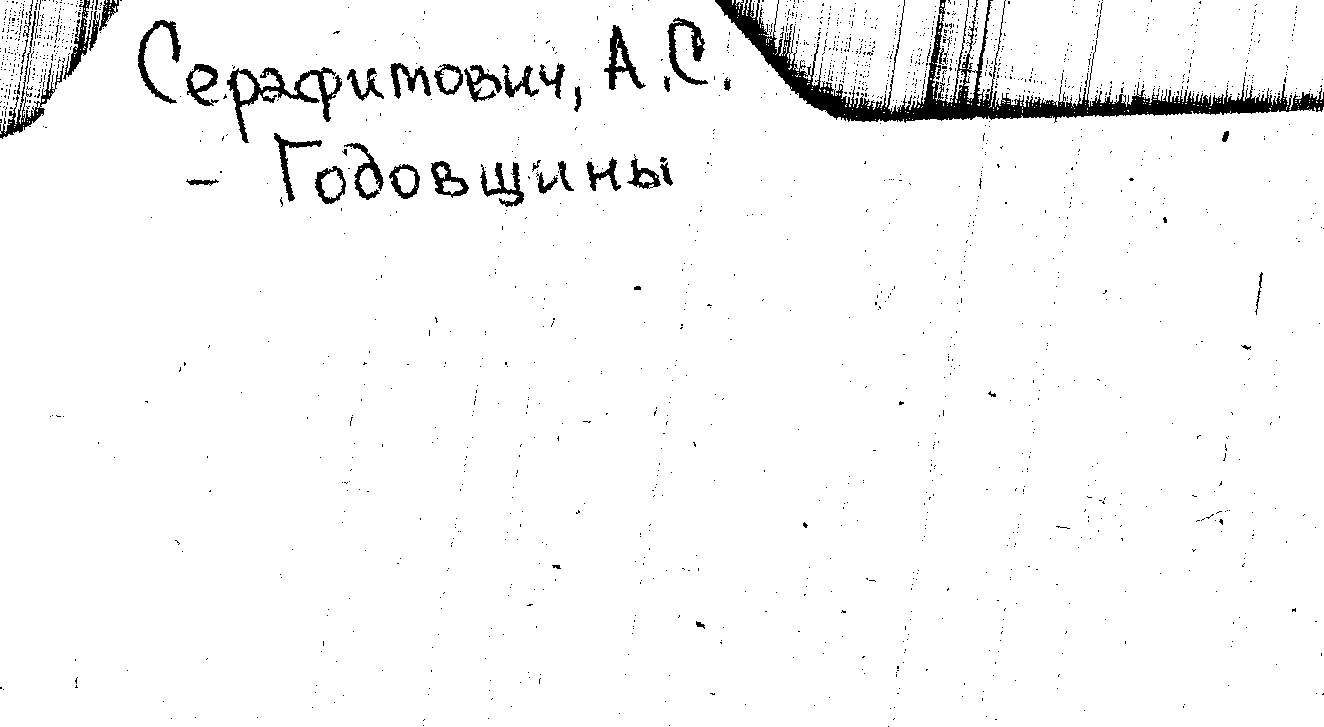 Серафимович, А.С.
- Годовщины